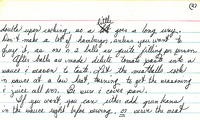 (2)
little
doubles upon cooking, so a goes a long way.
Don't make a lot of hamburgs, unless you want to
buy it, as one or 2 balls is quite filling per person.
After balls are made dilute tomato paste into a
sauce & season to taste. Let the meatballs cook
in sauce at a low heat, turning to get the seasoning
& juice all over. Be sure & cover pan.
If you want you can either add green beans
in the sauce right before serving or serve the meat